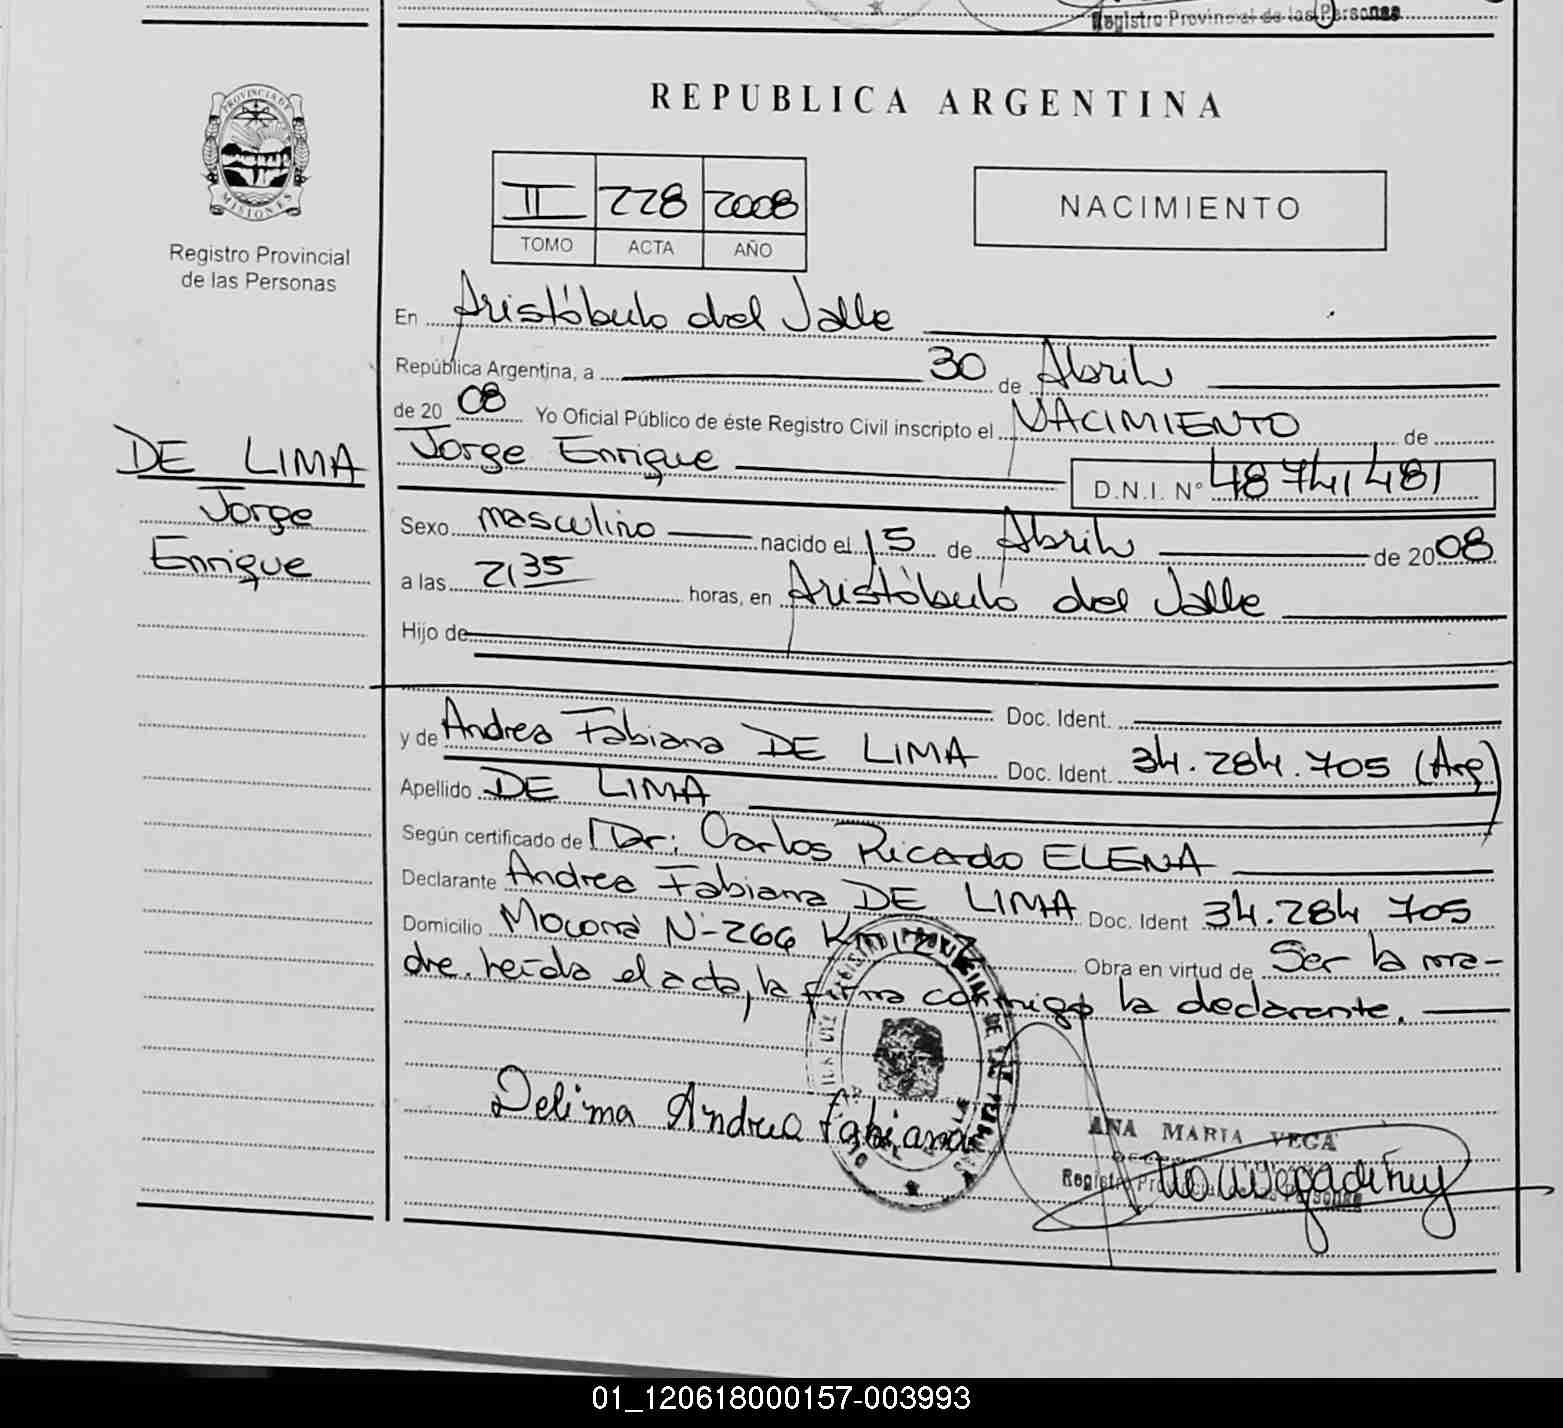 Registro Provincial de las Personas
REPUBLICA ARGENTINA
PROVINCIA DE
MISIONES
Registro Provincial
de las Personas
II 228 2008
TOMO ACTA AÑO
NACIMIENTO
En Aristóbulo del Valle
República Argentina, a 30 de Abril
de 20 08 Yo Oficial Público de éste Registro Civil inscripto el NACIMIENTO de
Jorge Enrique D.N.I. N° 48741481
DE LIMA
Jorge
Enrique
Sexo masculino nacido el 15 de Abril de 2008
a las 21,35 horas, en Aristóbulo del Valle
Hijo de
Doc. Ident.
y de Andrea Fabiana DE LIMA Doc. Ident. 34.284.705 (Arg)
Apellido DE LIMA
Según certificado de Dr. Carlos Ricardo ELENA
Declarante Andrea Fabiana DE LIMA Doc. Ident 34.284 705
Domicilio Moconá N-266 Km Obra en virtud de Ser la ma-
dre. Leída el acta, la firma conmigo la declarante.
Delima Andrea fabiana
ANA MARIA VEGA
Registro Provincial de las Personas
01_120618000157-003993